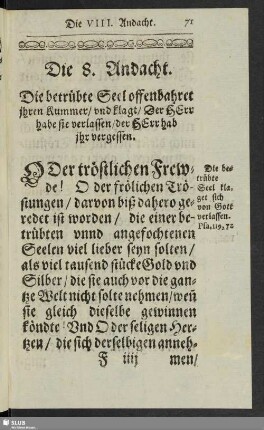 Die VIII. Andacht. 71
Die 8. Andacht.
Die betrübte Seel offenbahret
jhren Kummer/ vnd klagt/ Der HErr
habe sie verlassen/ der HErr hab
jhr vergessen.
O Der tröstlichen Frew-
de! O der frölichen Trö-
stungen/ darvon biß dahero ge-
redet ist worden/ die einer be-
trübten vnnd angefochtenen
Seelen viel lieber seyn solten/
als viel tausend stücke Gold vnd
Silber/ die sie auch vor die gan-
tze Welt nicht solte nehmen/ weñ
sie gleich dieselbe gewinnen
köndte! Vnd O der seligen Her-
tzen/ die sich derselbigen anneh-
F iiij men/
Die be-
trübte
Seel kla-
get sich
von Gott
verlassen.
Psa. 119, 72
SLUB